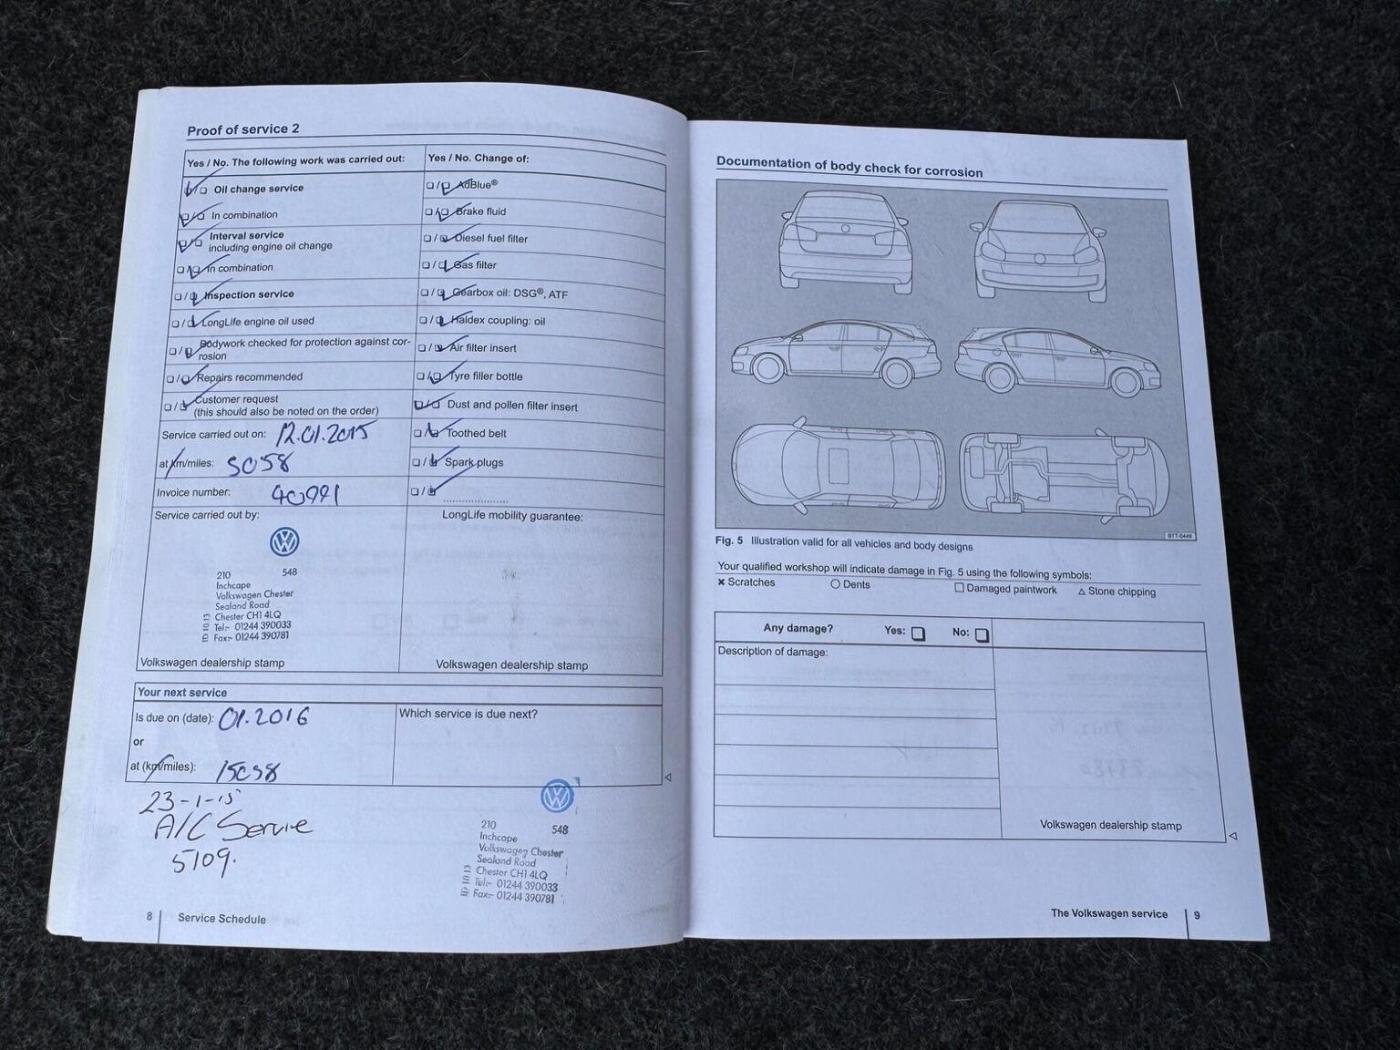 Proof of service 2
Yes / No. The following work was carried out:
Oil change service
In combination
Interval service
including engine oil change
In combination
Inspection service
LongLife engine oil used
Bodywork checked for protection against cor-
rosion
Repairs recommended
Customer request
(this should also be noted on the order)
Service carried out on: 12.01.2015
at km/miles: 5058
Invoice number: 40991
Service carried out by:
210 548
Inchcape
Volkswagen Chester
Sealand Road
Chester CH1 4LQ
Tel:- 01244 390033
Fax:- 01244 390781
Volkswagen dealership stamp
Yes / No. Change of:
AdBlue®
Brake fluid
Diesel fuel filter
Gas filter
Gearbox oil: DSG®, ATF
Haldex coupling: oil
Air filter insert
Tyre filler bottle
Dust and pollen filter insert
Toothed belt
Spark plugs
LongLife mobility guarantee:
Volkswagen dealership stamp
Your next service
Is due on (date): 01.2016
or
at (km/miles): 15058
Which service is due next?
23-1-15
A/C Service
5109.
210 548
Inchcape
Volkswagen Chester
Sealand Road
Chester CH1 4LQ
Tel:- 01244 390033
Fax:- 01244 390781
8 Service Schedule
Documentation of body check for corrosion
Fig. 5 Illustration valid for all vehicles and body designs
Your qualified workshop will indicate damage in Fig. 5 using the following symbols:
Scratches Dents Damaged paintwork Stone chipping
Any damage? Yes: No:
Description of damage:
Volkswagen dealership stamp
The Volkswagen service 9